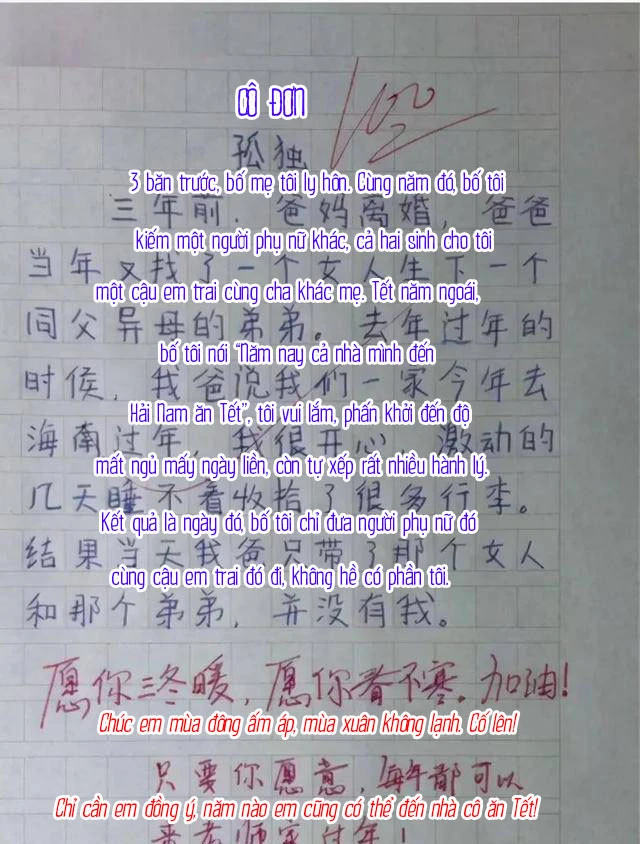 CÔ ĐƠN
100
孤独
3 băn trước, bố mẹ tôi ly hôn. Cùng năm đó, bố tôi
三年前，爸妈离婚，爸爸
kiếm một người phụ nữ khác, cả hai sinh cho tôi
当年又找了一个女人生下一个
một cậu em trai cùng cha khác mẹ. Tết năm ngoái,
同父异母的弟弟。去年过年的
bố tôi nói "Năm nay cả nhà mình đến
时候，我爸说我们一家今年去
Hải Nam ăn Tết", tôi vui lắm, phấn khởi đến độ
海南过年，我很开心 激动的
mất ngủ mấy ngày liền, còn tự xếp rất nhiều hành lý.
几天睡不着收拾了很多行李。
Kết quả là ngày đó, bố tôi chỉ đưa người phụ nữ đó
结果当天我爸只带了那个女人
cùng cậu em trai đó đi, không hề có phần tôi.
和那个弟弟，并没有我。
愿你三冬暖，愿你春不寒。加油!
Chúc em mùa đông ấm áp, mùa xuân không lạnh. Cố lên!
只要你愿意，每年都可以
Chỉ cần em đồng ý, năm nào em cũng có thể đến nhà cô ăn Tết!
来老师家过年!